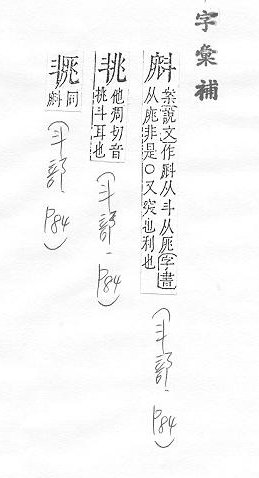 字彙補
案說文作从斗从字畫
从庣非是○又突也利也
(斗部. P84)
他凋切音
挑斗耳也
(斗部. P84)
同
(斗部. P84)